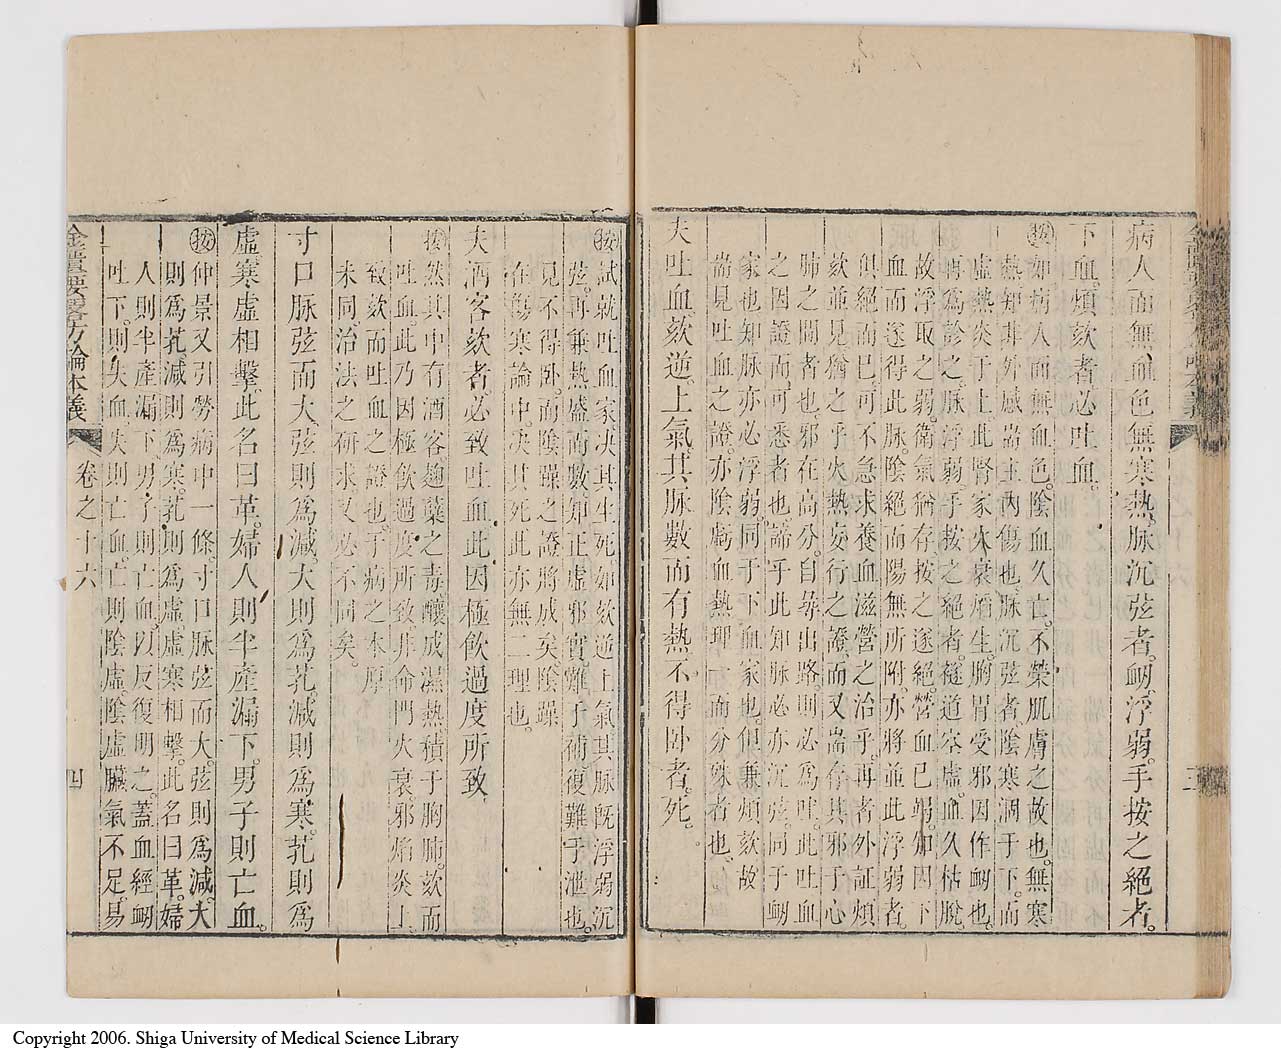 病人面無血色無寒熱脉沉弦者衂浮弱手按之絕者
下血煩欬者必吐血
按如病人面無血色陰血久亡不榮肌膚之故也無寒
熱知非外感耑主內傷也脉沉弦者陰寒涸于下而
虛熱炎于上此腎家火衰熖生胸胃受邪因作衂也
再為診之脉浮弱手按之絕者榮道空虛血久枯脫
故浮取之弱衛氣猶存按之遂絕營血已竭知因下
血而遂得此脉陰絕而陽無所附亦將並此浮弱者
俱絕而已可不急求養血滋營之治乎再者外証煩
欬並見猶之乎火熱妄行之證而又耑存其邪于心
肺之間者也邪在高分自尋出路則必為吐此吐血
之因證而可悉者也諦乎此知脉必亦沉弦同于衂
家也知脉亦必浮弱同于下血家也但兼煩欬故
耑見吐血之證亦陰虧血熱理一而分殊者也
夫吐血欬逆上氣其脉數而有熱不得卧者死
三
按試就吐血家决其生死如欬逆上氣其脉既浮弱沉
弦再兼熱盛而數知正虛邪實難于補復難于泄也
見不得卧而陰躁之證將成矣陰躁
在傷寒論中决其死此亦無二理也
夫酒客欬者必致吐血此因極飲過度所致
按然其中有酒客麯蘖之毒釀成濕熱積于胸肺欬而
吐血此乃因極飲過度所致非命門火衰邪焰炎上
致欬而吐血之證也于病之本厚
未同治法之研求又必不同矣
寸口脉弦而大弦則為減大則為芤減則為寒芤則為
虛寒虛相擊此名曰革婦人則半產漏下男子則亡血
按仲景又引勞病中一條寸口脉弦而大弦則為減大
則為芤減則為寒芤則為虛虛寒相擊此名曰革婦
人則半產漏下男子則亡血因反復明之蓋血經衂
吐下則失血失則亡血亡則陰虛陰虛臟氣不足易
金匱要畧方論本義
卷之十六
四
Copyright 2006. Shiga University of Medical Science Library